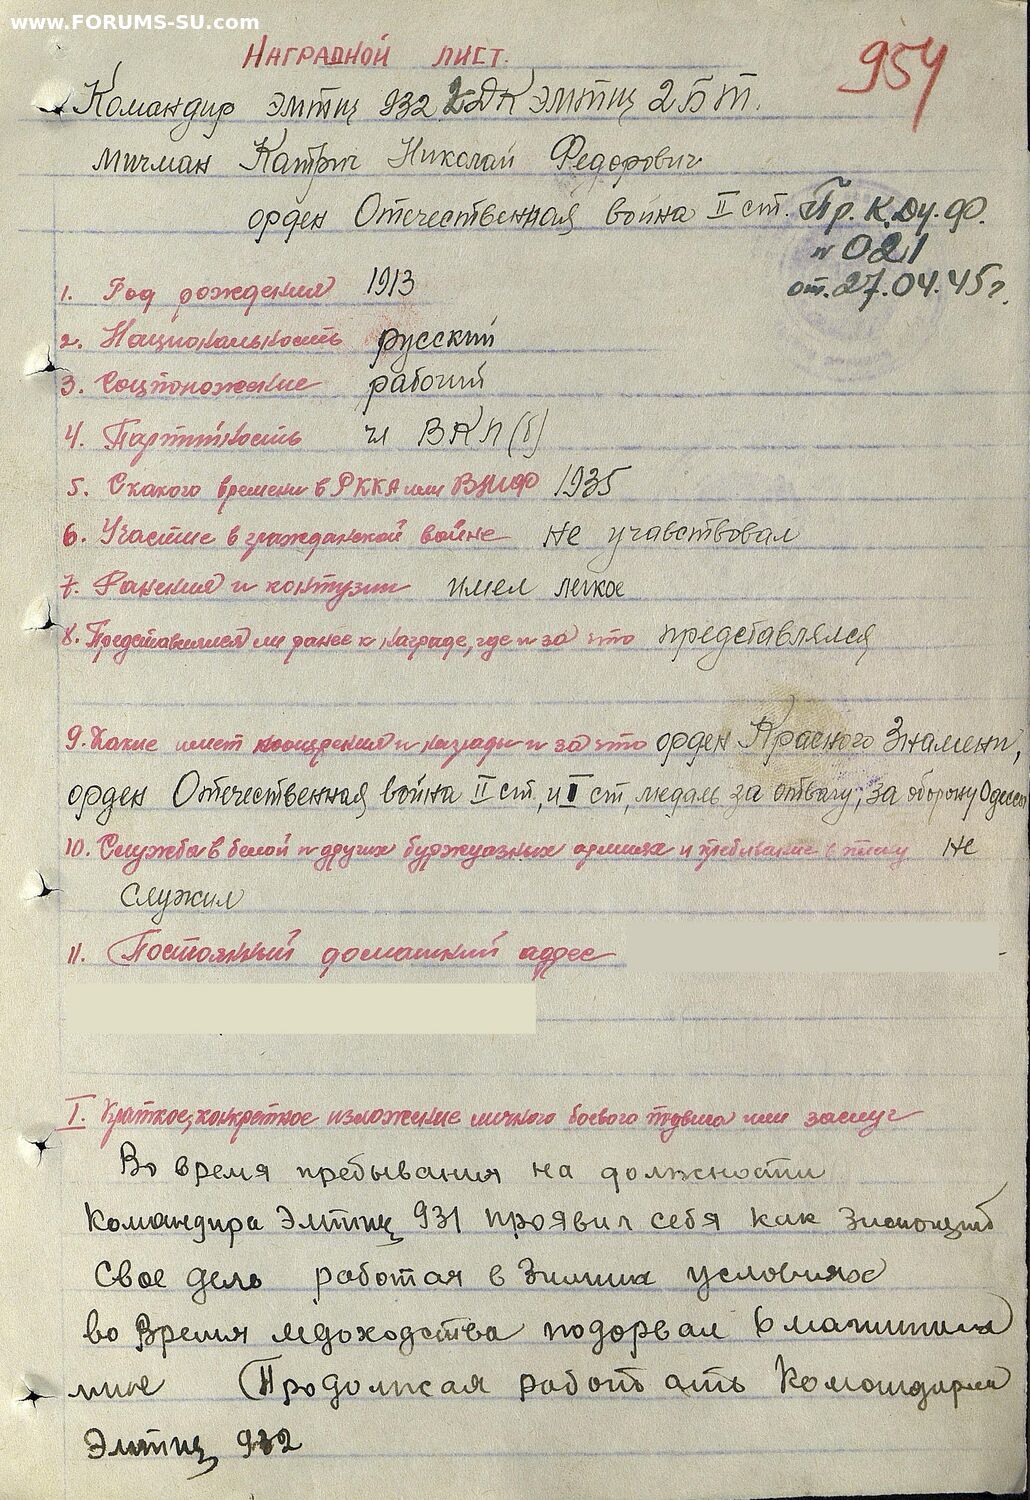 www.FORUMS-SU.com
НАГРАДНОЙ ЛИСТ.
954
Командир ЭМТЩ 932 2ДК ЭМТЩ 2 БТ.
мичман Катрич Николай Федорович
орден Отечественная война II ст. Пр. К. Ду. Ф.
№ 021
от. 27.04.45г.
1. Год рождения 1913
2. Национальность русский
3. Соцположение рабочий
4. Партийность чл ВКП(б)
5. С какого времени в РККА или ВМФ 1935
6. Участие в гражданской войне не учавствовал
7. Ранения и контузии имел легкое
8. Представлялся ли ранее к награде, где и за что представлялся
9. Какие имеет поощрения и награды и за что орден Красного Знамени,
орден Отечественная война II ст, и I ст, медаль за отвагу, за оборону Одессы
10. Служба в белой и других буржуазных армиях и пребывание в плену не
служил
11. Постоянный домашний адрес
I. Краткое, конкретное изложение личного боевого подвига или заслуг
Во время пребывания на должности
командира Эмтщ 931 проявил себя как
свое дело работая в зимних условиях
во время ледоходства подорвал 6
мине Продолжая работ ать Командиром
Эмтщ 932